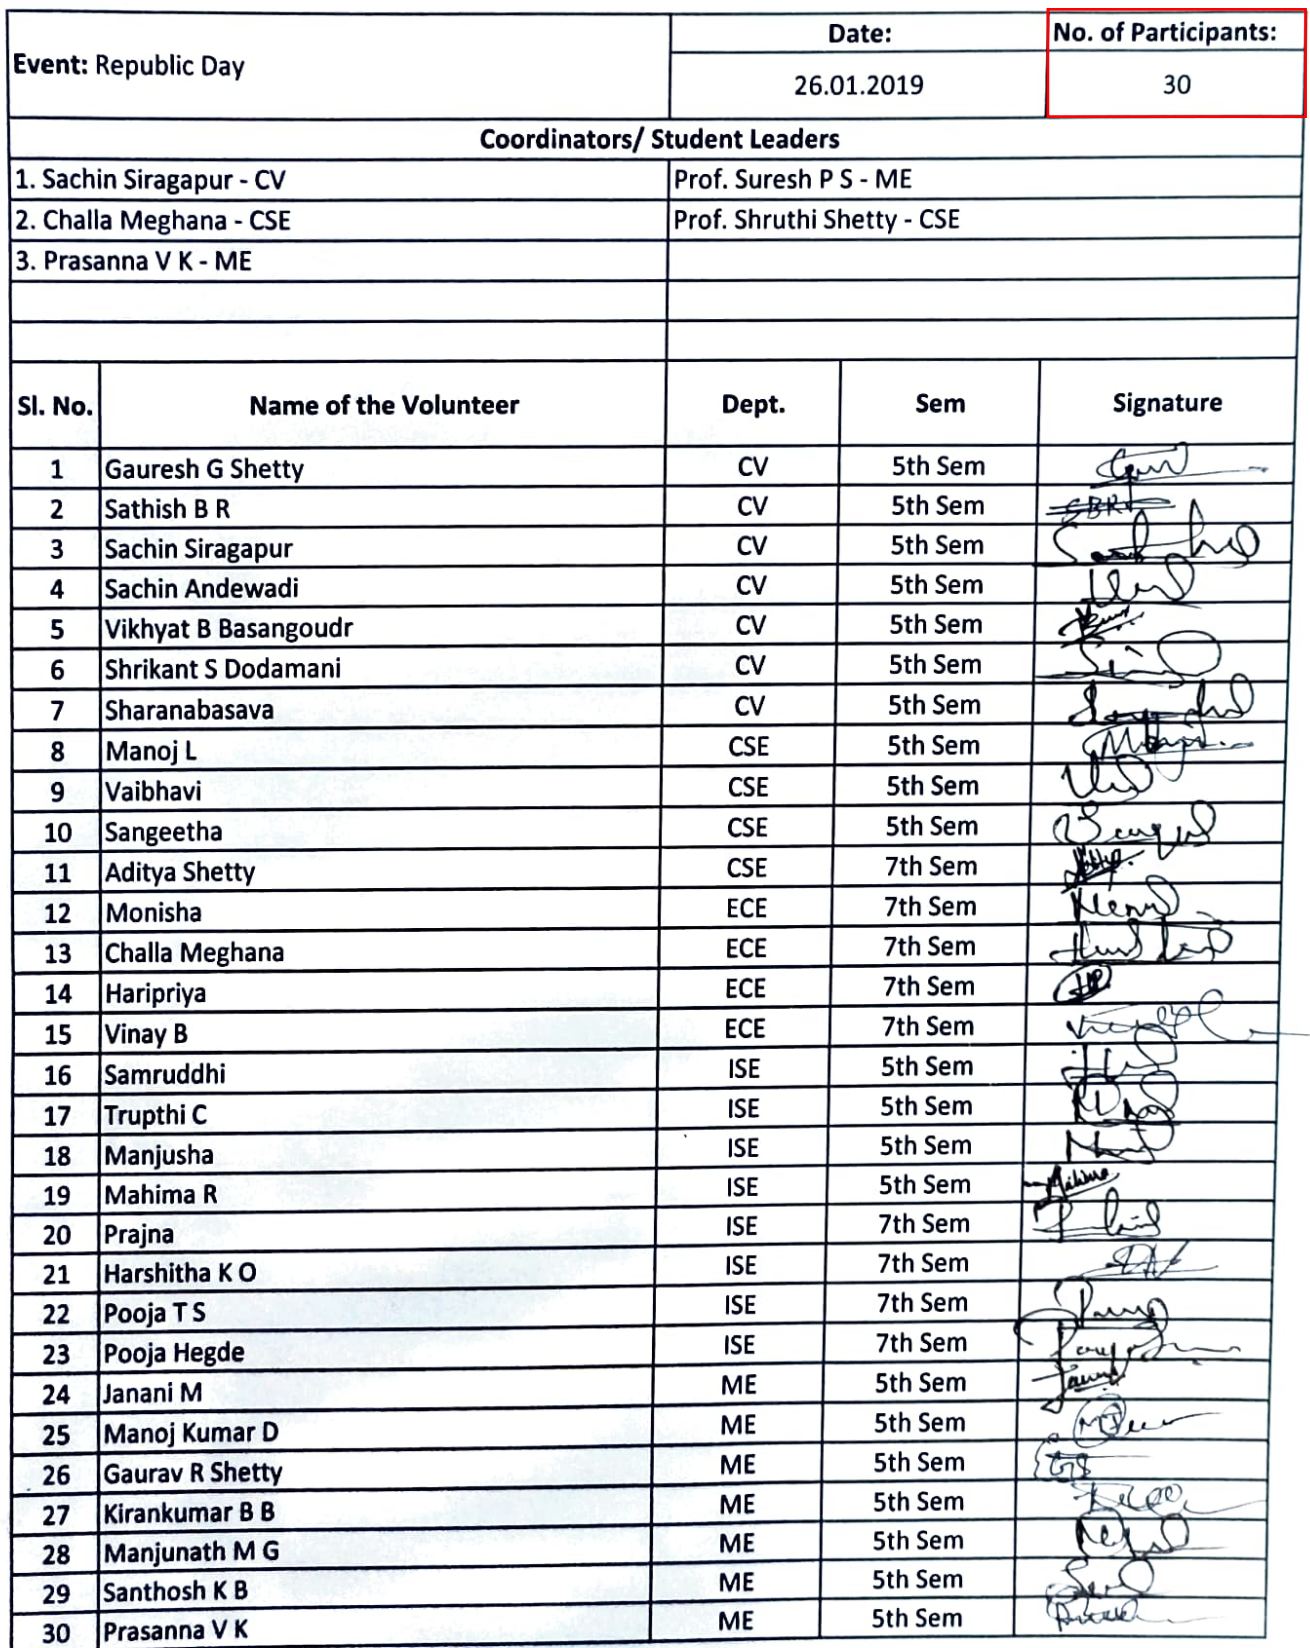 Event: Republic Day
Date:
No. of Participants:
26.01.2019
30
Coordinators/ Student Leaders
1. Sachin Siragapur - CV Prof. Suresh P S - ME
2. Challa Meghana - CSE Prof. Shruthi Shetty - CSE
3. Prasanna V K - ME
Sl. No. Name of the Volunteer Dept. Sem Signature
1 Gauresh G Shetty CV 5th Sem
2 Sathish B R CV 5th Sem SBR
3 Sachin Siragapur CV 5th Sem
4 Sachin Andewadi CV 5th Sem
5 Vikhyat B Basangoudr CV 5th Sem
6 Shrikant S Dodamani CV 5th Sem
7 Sharanabasava CV 5th Sem
8 Manoj L CSE 5th Sem
9 Vaibhavi CSE 5th Sem
10 Sangeetha CSE 5th Sem
11 Aditya Shetty CSE 7th Sem
12 Monisha ECE 7th Sem
13 Challa Meghana ECE 7th Sem
14 Haripriya ECE 7th Sem
15 Vinay B ECE 7th Sem
16 Samruddhi ISE 5th Sem
17 Trupthi C ISE 5th Sem
18 Manjusha ISE 5th Sem
19 Mahima R ISE 5th Sem Mahima
20 Prajna ISE 7th Sem
21 Harshitha K O ISE 7th Sem
22 Pooja T S ISE 7th Sem
23 Pooja Hegde ISE 7th Sem
24 Janani M ME 5th Sem
25 Manoj Kumar D ME 5th Sem
26 Gaurav R Shetty ME 5th Sem
27 Kirankumar B B ME 5th Sem
28 Manjunath M G ME 5th Sem
29 Santhosh K B ME 5th Sem
30 Prasanna V K ME 5th Sem